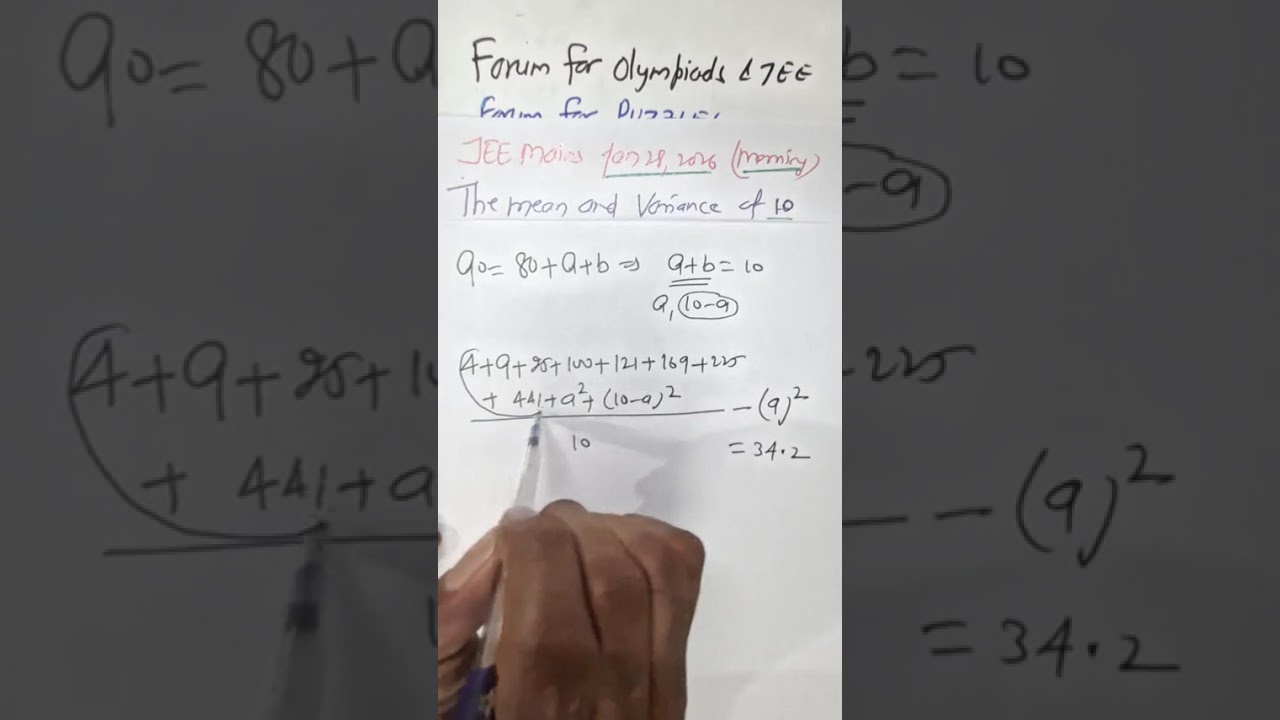 Forum for Olympiads & JEE
Forum for Puzzles
JEE Mains Jan 28, 2026 (Morning)
The mean and Variance of 10
90 = 80 + a + b ⇒ a + b = 10
a, 10 - a
4 + 9 + 25 + 100 + 121 + 169 + 225
+ 441 + a² + (10 - a)² - (9)²
10 = 34.2